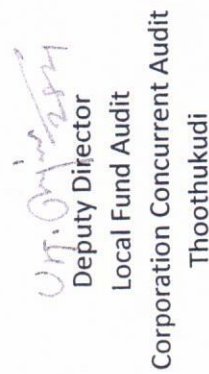 Deputy Director
Local Fund Audit
Corporation Concurrent Audit
Thoothukudi